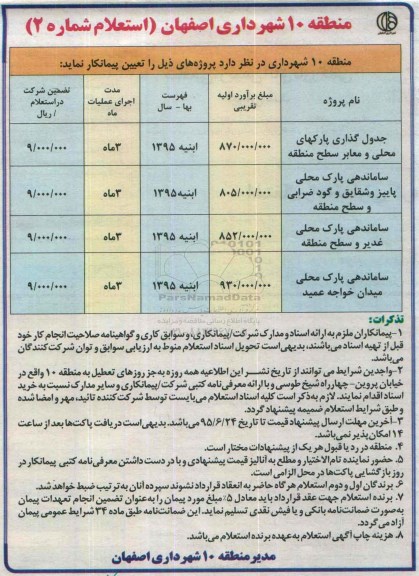 منطقه ۱۰ شهرداری اصفهان (استعلام شماره ۲)
منطقه ۱۰ شهرداری در نظر دارد پروژه‌های ذیل را تعیین پیمانکار نماید:
نام پروژه
مبلغ برآورد اولیه تقریبی
فهرست بها - سال
مدت اجرای عملیات ماه
تضمین شرکت دراستعلام / ریال
جدول گذاری پارکهای محلی و معابر سطح منطقه
۸۷۰/۰۰۰/۰۰۰
ابنیه ۱۳۹۵
۳ماه
۹/۰۰۰/۰۰۰
ساماندهی پارک محلی پاییز وشقایق و گود ضرابی و سطح منطقه
۸۰۵/۰۰۰/۰۰۰
ابنیه۱۳۹۵
۳ماه
۹/۰۰۰/۰۰۰
ساماندهی پارک محلی غدیر و سطح منطقه
۸۵۲/۰۰۰/۰۰۰
ابنیه ۱۳۹۵
۳ماه
۹/۰۰۰/۰۰۰
ساماندهی پارک محلی میدان خواجه عمید
۹۳۰/۰۰۰/۰۰۰
ابنیه ۱۳۹۵
۳ماه
۹/۰۰۰/۰۰۰
ParsNamadData
تذکرات:
۱-پیمانکاران ملزم به ارائه اسناد و مدارک شرکت/پیمانکاری، و سوابق کاری و گواهینامه صلاحیت انجام کار خود
قبل از تهیه اسناد می‌باشند، بدیهی است تحویل اسناد استعلام منوط به ارزیابی سوابق و توان شرکت‌کنندگان
می‌باشد.
۲-واجدین شرایط می توانند از تاریخ نشر این اطلاعیه همه روزه به جز روزهای تعطیل به منطقه ۱۰ واقع در
خیابان پروین-چهارراه شیخ طوسی و با ارائه معرفی‌نامه کتبی شرکت/پیمانکاری و سایر مدارک نسبت به خرید
اسناد اقدام نمایند. لازم به‌ذکر است کلیه اسناد استعلام می‌بایست توسط شرکت‌کننده تائید، مهر و امضا شده
و طبق شرایط استعلام ضمیمه پیشنهاد گردد.
۳-آخرین مهلت ارسال پیشنهاد قیمت تا تاریخ ۹۵/۶/۲۴ می‌باشد. بدیهی است دریافت پاکت‌ها بعد از ساعت
۱۴ امکان‌پذیر نمی‌باشد.
۴. منطقه در رد یا قبول هر یک از پیشنهادات مختار است.
۵. حضور نماینده تام‌الاختیار و مطلع به آنالیز قیمت پیشنهادی و با در دست داشتن معرفی‌نامه کتبی پیمانکار در
روز بازگشایی پاکت‌ها در محل الزامی است.
۶. برندگان اول و دوم استعلام هر گاه حاضر به انعقاد قرارداد نشوند سپرده آنان به ترتیب ضبط خواهد شد.
۷. برنده استعلام جهت عقد قرارداد باید معادل ۵٪ مبلغ مورد پیمان را به‌عنوان تضمین انجام تعهدات پیمان
به صورت ضمانت‌نامه بانکی و یا فیش نقدی تسلیم نماید. این ضمانت‌نامه طبق ماده ۳۴ شرایط عمومی پیمان
آزاد می‌گردد.
۸. هزینه چاپ آگهی استعلام به عهده برنده استعلام می‌باشد.
مدیر منطقه ۱۰ شهرداری اصفهان